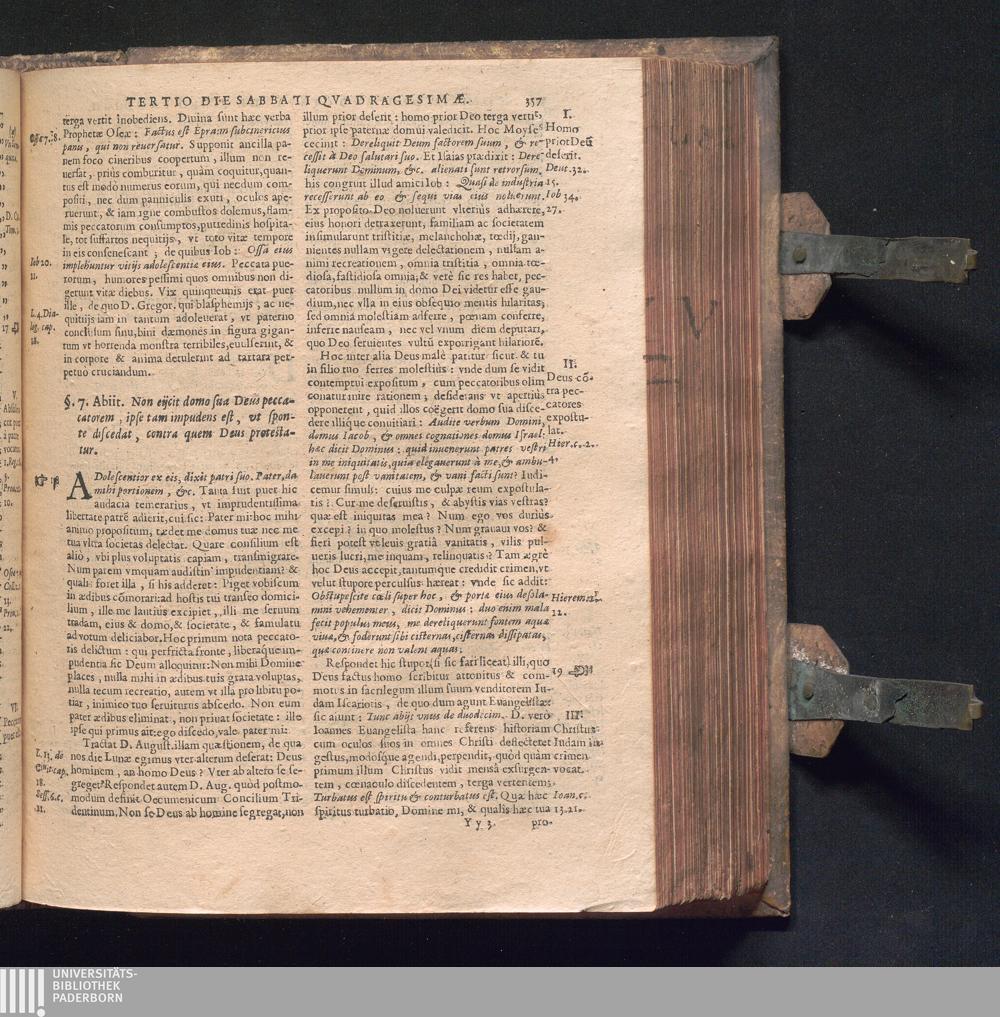 TERTIO DIE SABBATI QVADRAGESIMÆ. 357
terga vertit inobediens. Diuina sunt hæc verba
Prophetæ Oseæ: Factus est Epraim subcinericius
panis, qui non reuersatur. Supponit ancilla pa-
nem foco cineribus coopertum, illum non re-
uersat, prius comburitur, quàm coquitur, quan-
tus est modò numerus eorum, qui necdum com-
positi, nec dum panniculis exuti, oculos ape-
ruerunt, & iam igne combustos dolemus, flam-
mis peccatorum consumptos, putredinis hospita-
le, tot suffartos nequitijs, vt toto vitæ tempore
in eis consenescant; de quibus Iob: Ossa eius
implebuntur vitijs adolescentiæ eius. Peccata pue-
rorum, humores pessimi quos omnibus non di-
gerunt vitæ diebus. Vix quinquennis erat puer
ille, de quo D. Gregor. qui blasphemijs, ac ne-
quitijs iam in tantum adoleuerat, vt paterno
conclusum sinu, bini dæmones in figura gigan-
tum vt horrenda monstra terribiles, euulserint, &
in corpore & anima detulerint ad tartara per-
petuo cruciandum.
§. 7. Abiit. Non eijcit domo sua Deus pecca-
catorem, ipse tam impudens est, vt spon-
te discedat, contra quem Deus protesta-
tur.
ADolescentior ex eis, dixit patri suo. Pater, da
mihi portionem, &c. Tanta fuit puer hic
audacia temerarius, vt imprudentissima
libertate patrē adierit, cui sic: Pater mi: hoc mihi
animo propositum, tædet me domus tuæ nec me
tua vltra societas delectat. Quare consilium est
aliò, vbi plus voluptatis capiam, transmigrare.
Num parem vmquam audistin' impudentiam? &
qualis foret illa, si his adderet: Piget vobiscum
in ædibus cōmorari: ad hostis tui transeo domici-
lium, ille me lautius excipiet, illi me seruum
tradam, eius & domo, & societate, & famulatu
ad votum deliciabor. Hoc primum nota peccato-
ris delictum: qui perfricta fronte, liberaque im-
pudentia sic Deum alloquitur: Non mihi Domine
places, nulla mihi in ædibus tuis grata voluptas,
nulla tecum recreatio, autem vt illa pro libitu po-
tiar, inimico tuo seruiturus abscedo. Non eum
pater ædibus eliminat, non priuat societate: ille
ipse qui primus ait: ego discedo, vale pater mi:
Tractat D. August. illam quæstionem, de qua
nos die Lunæ egimus vter alterum deserat: Deus
hominem, an homo Deus? Vter ab altero se se-
greget? Respondet autem D. Aug. quod postmo-
modum definit Oecumenicum Concilium Tri-
dentinum, Non se Deus ab homine segregat, non
Ose 7. 8.
Iob 20.
11.
L. 4. Dia-
log. cap.
18.
18
L. 13. de
Ciuit. cap.
18.
Sess. 6. c.
11.
illum prior deserit: homo prior Deo terga vertit,
prior ipse paternæ domui valedicit. Hoc Moyses
cecinit: Dereliquit Deum factorem suum, & re-
cessit à Deo salutari suo. Et Isaias prædixit: Dere-
liquerunt Dominum, &c. alienati sunt retrorsum.
his congrunt illud amici Iob: Quasi de industria
recesserunt ab eo & sequi vias eius noluerunt.
Ex proposito Deo noluerunt vlterius adhærere,
eius honori detraxerunt, familiam ac societatem
insimularunt tristitiæ, melancholiæ, tœdij, gan-
nientes nullam vigere delectationem, nullam a-
nimi recreationem, omnia tristitia, omnia tœ-
diosa, fastidiosa omnia; & verè sic res habet, pec-
catoribus nullum in domo Dei videtur esse gau-
dium, nec vlla in eius obsequio mentis hilaritas;
sed omnia molestiam adferre, pœnam conferre,
inferre nauseam, nec vel vnum diem deputari,
quo Deo seruientes vultū exporrigant hilariorē.
Hoc inter alia Deus malè patitur sicut & tu
in filio tuo ferres molestius: vnde dum se vidit
contemptui expositum, cum peccatoribus olim
conatur inire rationem; desiderans vt apertius
opponerent, quid illos coëgerit domo sua disce-
dere illique conuitiari: Audite verbum Domini,
domus Iacob, & omnes cognationes domus Israel:
hæc dicit Dominus: quid inuenerunt patres vestri
in me iniquitatis, quia elongauerunt à me, & ambu-
lauerunt post vanitatem, & vani facti sunt? Iudi-
cemur simul: cuius me culpæ reum expostula-
tis? Cur me deseruistis, & abystis vias vestras?
quæ est iniquitas mea? Num ego vos durius
excepi? in quo molestus? Num grauaui vos? &
fieri potest vt leuis gratiâ vanitatis, vilis pul-
ueris lucri, me inquam, relinquatis? Tam ægrè
hoc Deus accepit, tantumque credidit crimen, vt
velut stupore perculsus hæreat: vnde sic addit:
Obstupescite cœli super hoc, & portæ eius desola-
mini vehementer, dicit Dominus: duo enim mala
fecit populus meus, me dereliquerunt fontem aquæ
viuæ, & foderunt sibi cisternas, cisternas dissipatas,
quæ continere non valent aquas.
Respondet hic stupor (si sic fari liceat) illi, quo
Deus factus homo scribitur attonitus & com-
motus in sacrilegum illum suum venditorem Iu-
dam Iscariotis, de quo dum agunt Euangelistæ
sic aiunt: Tunc abijt vnus de duodecim. D. verò
Ioannes Euangelista hanc referens historiam
cum oculos suos in omnes Christi deflecteret
gestus, modosq́ue agendi, perpendit, quòd quàm
primum illum Christus vidit mensâ exsurgen-
tem, cœnaculo discedentem, terga vertentem;
Turbatus est spiritu & conturbatus est. Quæ hæc
spiritus turbatio, Domine mi, & qualis hæc tua
I.
Homo
prior Deū
deserit.
Deut. 32.
15.
Iob 34.
27.
II.
Deus cō-
tra pec-
catores
expostu-
lat.
Hier. c. 2.
4.
Hierem. 2.
12.
19
III.
Christus
Iudam in
crimen
vocat.
Ioan. c.
13. 21.
Y y 3. pro-
UNIVERSITÄTS-
BIBLIOTHEK
PADERBORN